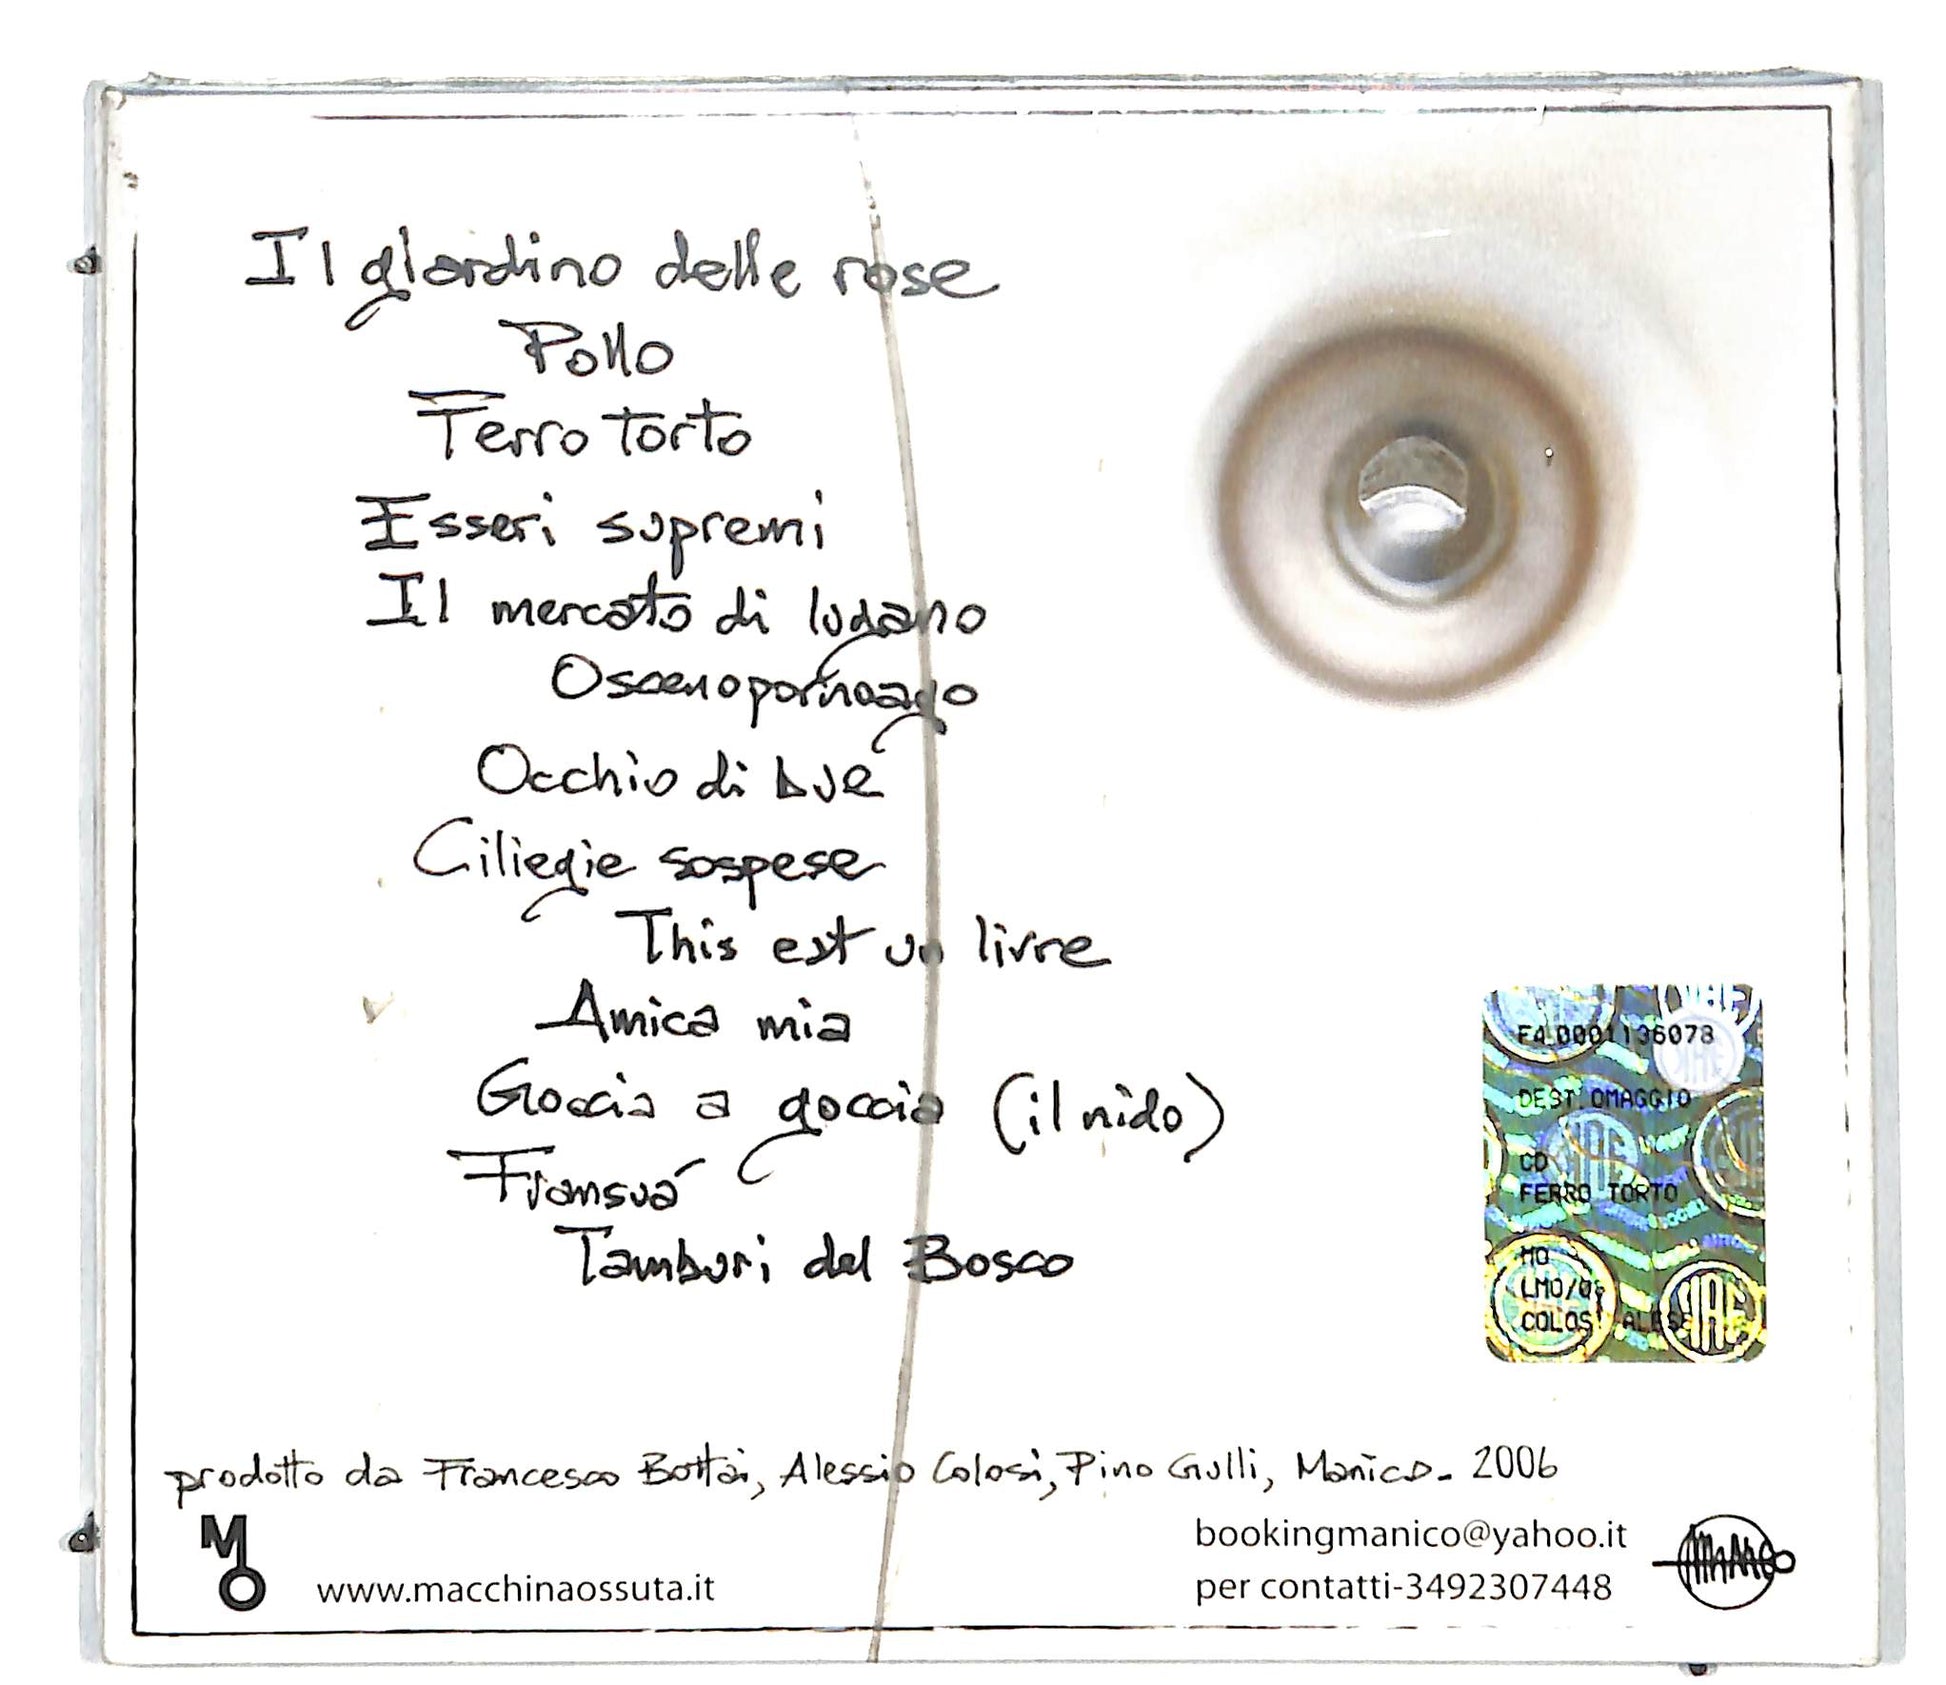 Il giardino delle rose
Pollo
Ferro torto
Esseri supremi
Il mercato di lugano
Oscenopornoago
Occhio di bue
Ciliegie sospese
This est un livre
Amica mia
Goccia a goccia (il nido)
Fransuá
Tamburi del Bosco
F4.0001136078
DEST.OMAGGIO
CD
FERRO TORTO
MO
LMO/0
COLOSI ALESS
prodotto da Francesco Bottai, Alessio Colosi, Pino Gulli, Manico - 2006
MO
www.macchinaossuta.it
bookingmanico@yahoo.it
per contatti-3492307448
MANICO